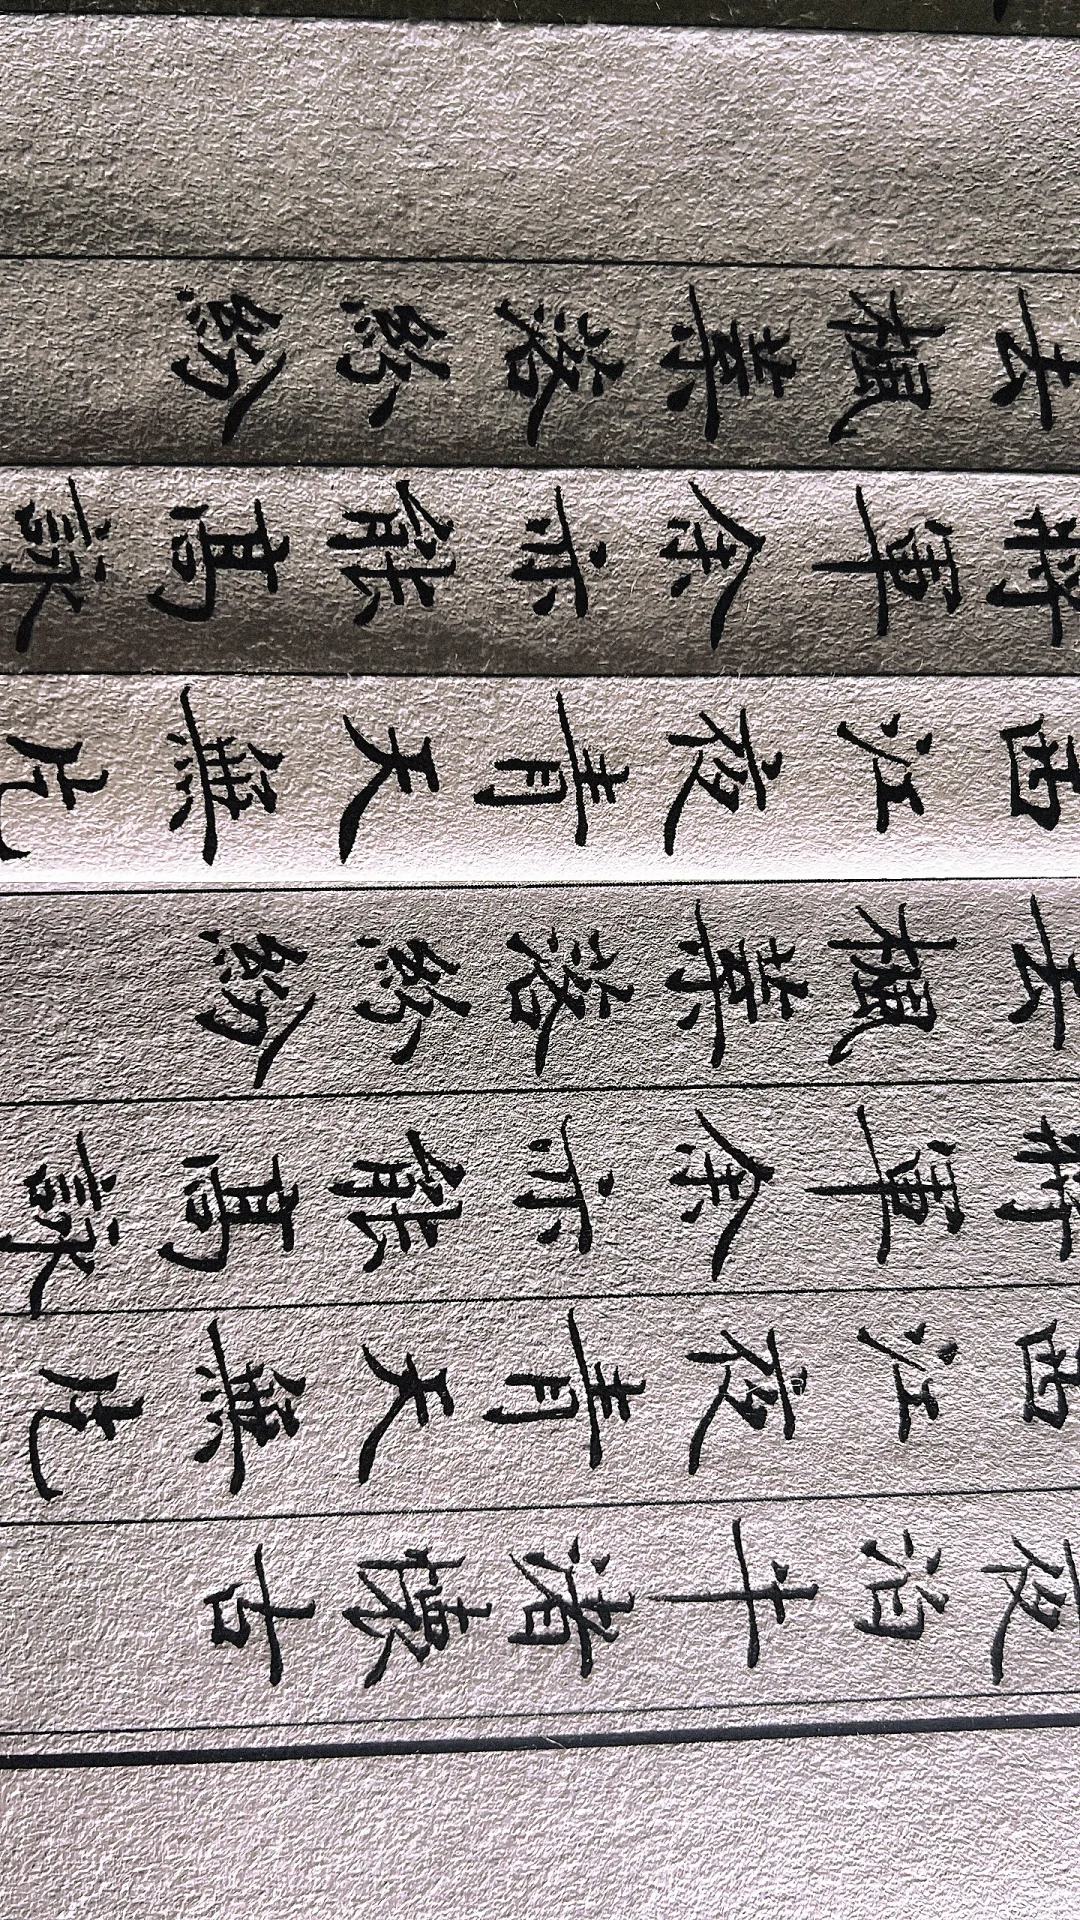 夜泊牛渚懷古
西江夜青天無片
將軍余亦能高詠
去楓葉落紛紛
西江夜青天無片
將軍余亦能高詠
去楓葉落紛紛